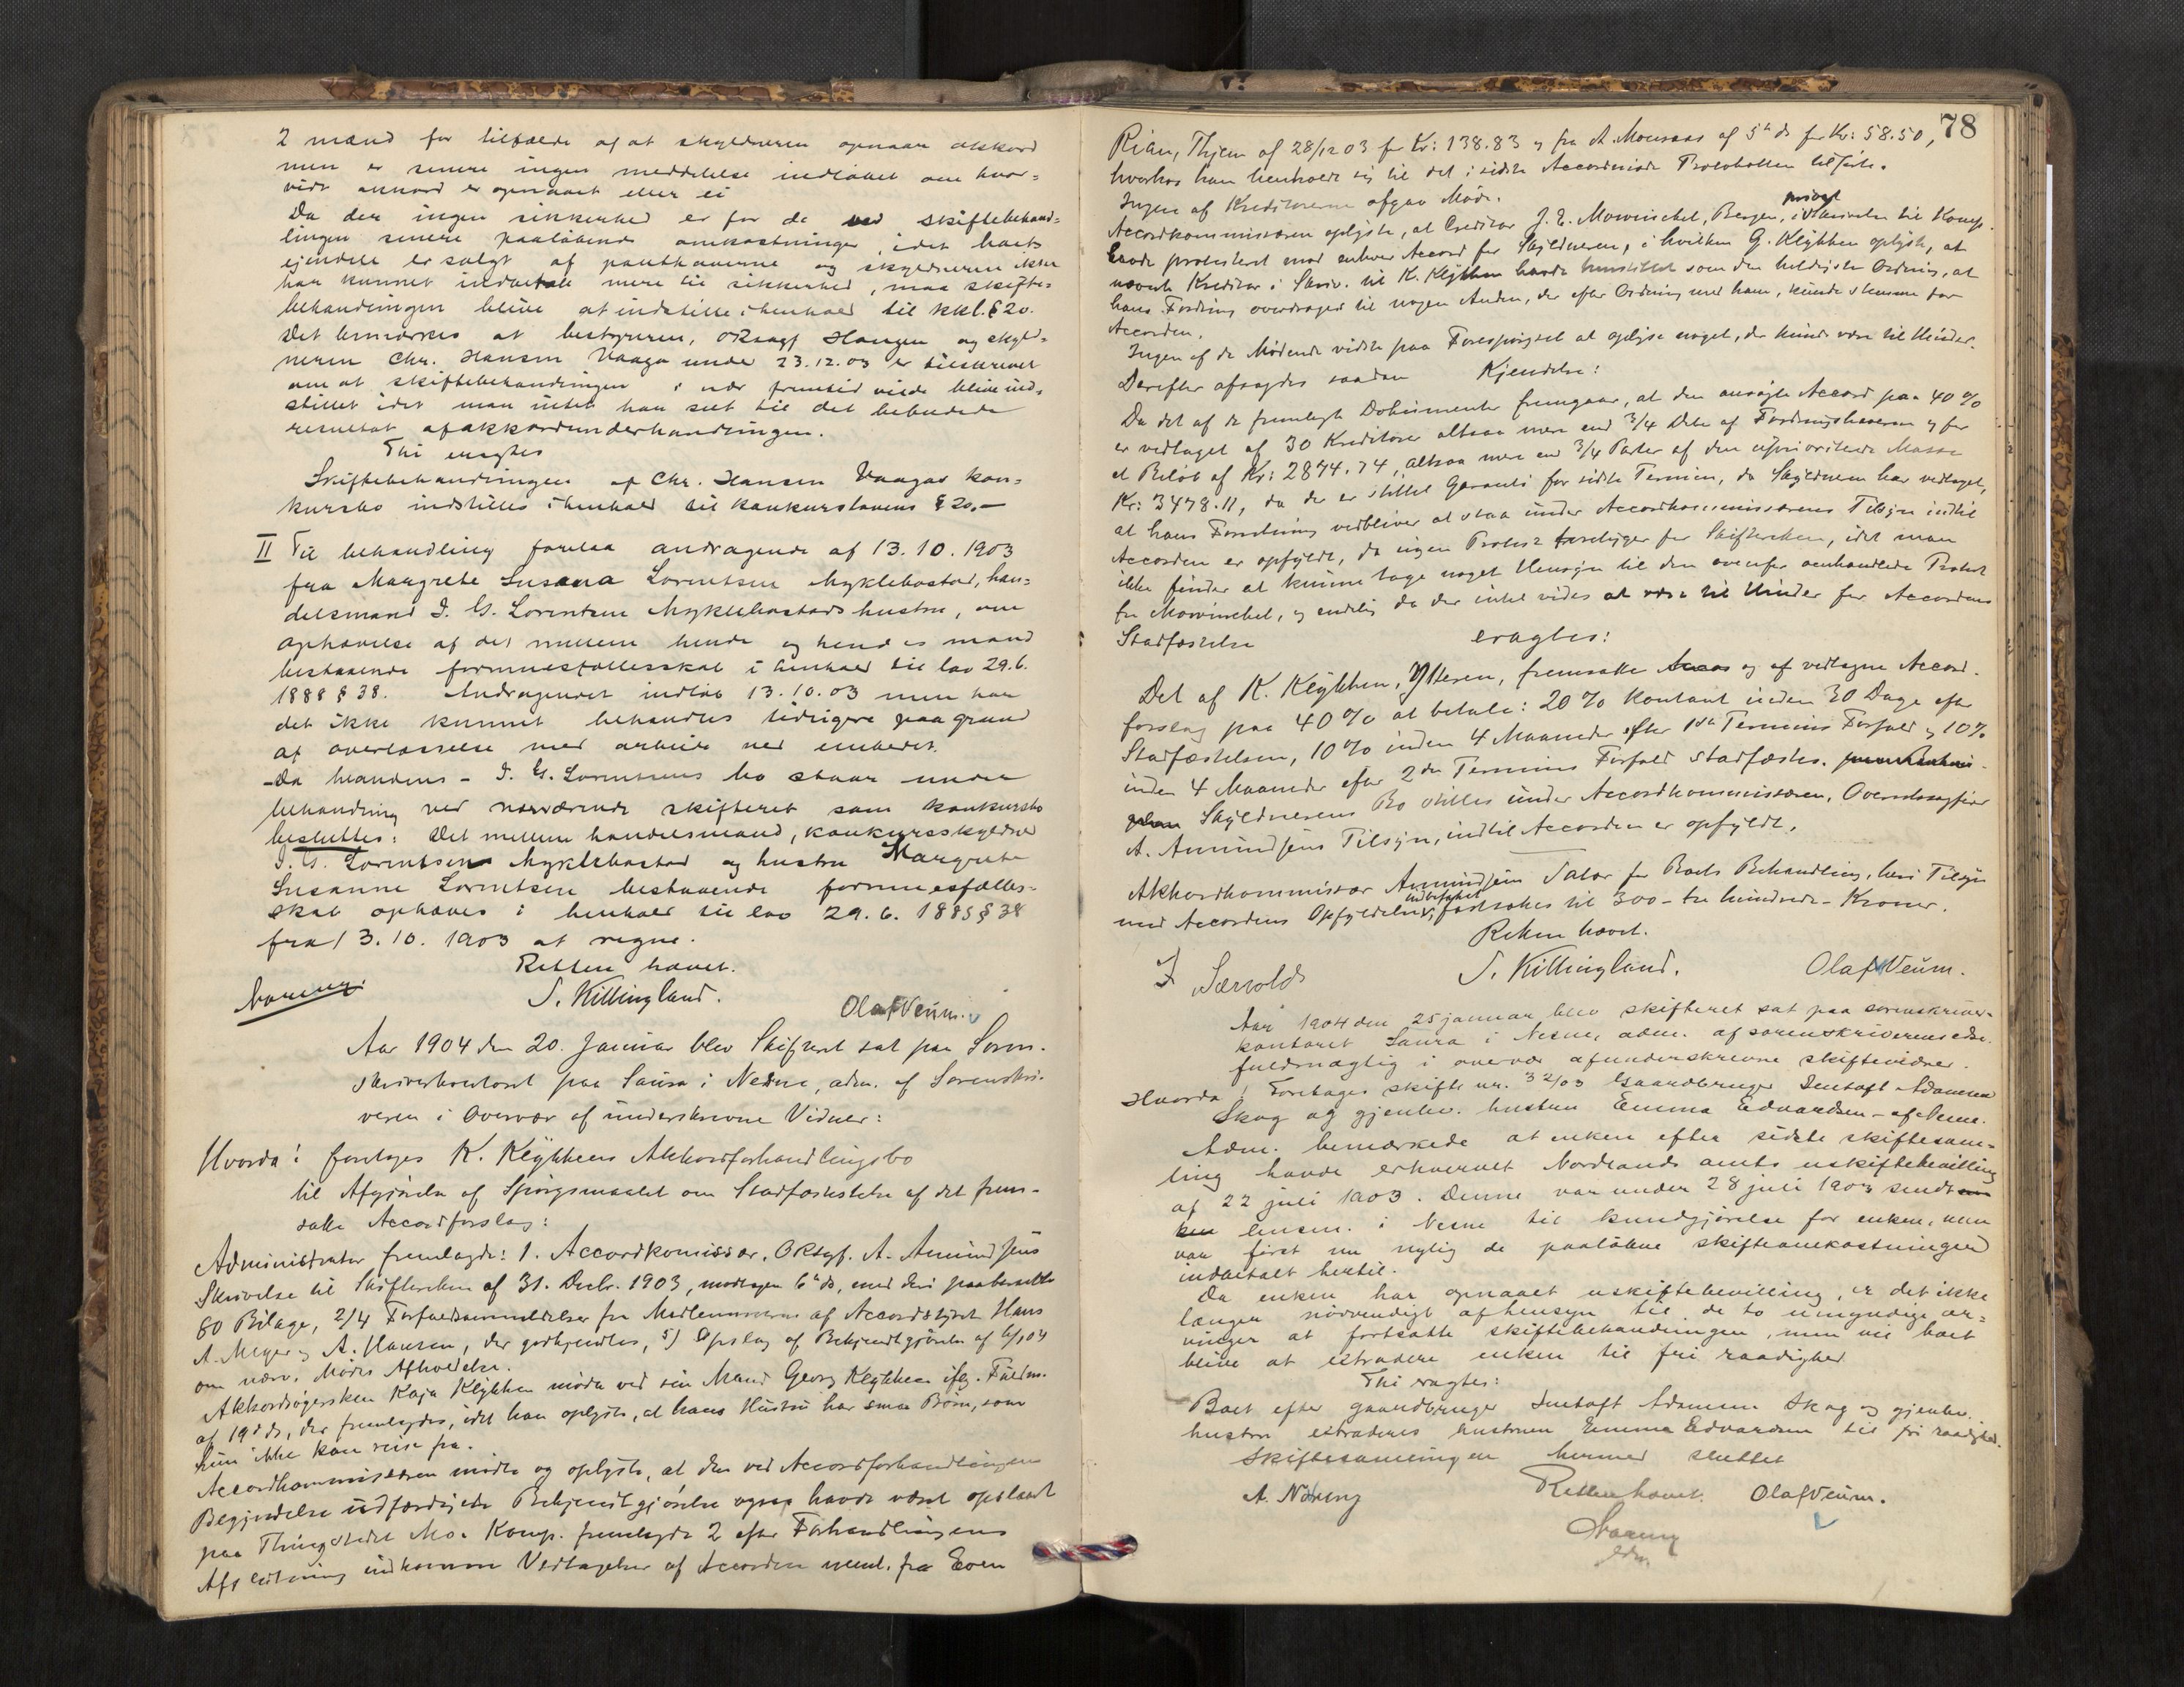 2 mænd for tilfælde af at skyldneren opnaar akkord
men er senere ingen meddelelse indløbet om hvor=
vidt akkord er opnaaet eller ei
Da der ingen sikkerhed er for de ved skiftebehand=
lingen senere paaløbende omkostninger, idet boets
eiendele er solgt af panthaverne og skyldneren ikke
har kunnet indbetale mere til sikkerhed, maa skifte=
behandlingen blive at indstille i henhold til kkl. § 20.
Det bemærkes at bestyreren, oRsagf Haugen og skyld=
neren Chr. Hansen Vaaga under 23.12.03 er tilskrevet
om at skiftebehandlingen i nær fremtid vilde blive ind=
stillet idet man intet har seet til det bebudede
resultat af akkordunderhandlingen.
Thi eragtes
Skiftebehandlingen af Chr. Hansen Vaagas kon=
kursbo indstilles i henhold til konkurslovens § 20.-
II Til behandling forelaa andragende af 13.10.1903
fra Margrete Susana Lorentsen Myklebostad, han=
delsmand I. G. Lorentsen Myklebostads hustru, om
ophævelse af det mellem hende og hendes mand
bestaaende formuesfællesskab i henhold til lov 29.6.
1888 § 38. Andragendet indløb 13.10.03 men har
det ikke kunnet behandles tidligere paa grund
af overlæsselse med arbeide ved embedet.
-Da mandens - I. G. Lorentsens bo staar under
behandling ved nærværende skifteret som konkursbo
besluttes: Det mellem handelsmand, konkursskyldner
I. G. Lorentsen Myklebostad og hustru Margrete
Susanne Lorentsen bestaaende formuesfælles-
skab ophæves i henhold til lov 29.6.1888 § 38
fra 13.10.1903 at regne.
Retten hævet.
S. Killingland. Olaf Veum.
Aar 1904 den 20. Januar blev Skifteret sat paa Soren-
skriverkontoret paa Saura i Nesne, adm. af Sorenskri-
veren i Overvær af underskrevne Vidner:
Hvorda: foretoges K. Klykkens Akkordforhandlingsbo
til Afgjørelse af Spørgsmaalet om Stadfæstelse af det frem-
satte Accordforslag:
Administrator fremlagde: 1. Accordkomissær, ORsgf. A. Amundsens
Skrivelse til Skifteretten af 31. Decbr. 1903, modtagen 6te ds, med deri paaberaabte
60 Bilage, 2/4 Forfaldsanmeldelser fra Medlemmerne af Accordstyret Hans
A. Meyer og A. Hansen, der godkjendtes, 5) Opslag af Bekjendtgjørelse af 6/1 04
om nærv. Mødes Afholdelse.
Akkordsøgersken Kaja Klykken mødte ved sin Mand Georg Klykken ifølg. Fuldm.
af 19de ds, der fremlagdes, idet han oplyste, at hans Hustru har smaa Børn, som
hun ikke kan reise fra.
Accordkommissæren mødte og oplyste, at den ved Accordforhandlingens
Begyndelse udfærdigede Bekjendtgjørelse ogsaa havde været opslaaet
paa Thingstedet Mo. Komp. fremlagde 2 efter Forhandlingens
Afslutning indkomne Vedtagelser af Accorden neml. fra Even
78
Rian, Thjem af 28/12 03 for Kr: 138.83 og fra A. Mousaas af 5te ds for Kr: 58.50,
hvorhos han henholdt sig til det i sidste Accordmøde Protokollen tilførte.
Ingen af Kreditorerne afgav Møde.
privat
Accordkommissæren oplyste, at Creditor J. E. Mowinckel, Bergen, i Skrivelse til Komp.
havde protesteret mod enhver Accord for Skyldneren, i hvilken G. Klykken oplyste, at
nævnte Kreditor i Skriv. til K. Klykken havde henstillet som den heldigste Ordning, at
hans Fordring overdroges til nogen Anden, der efter Ordning med ham, kunde stemme for
Accorden.
Ingen af de Mødende vidste paa Forespørgsel at oplyse noget, der kunde være til Hinder.
Derefter afsagdes saadan Kjendelse:
Da det af de fremlagte Dokumenter fremgaar, at den ansøgte Accord paa 40 %
er vedtaget af 30 Kreditorer altsaa mere end 3/4 Dele af Fordringshaverne og for
et Beløb af Kr: 2874.74, altsaa mere end 3/4 Parter af den uprioriterede Masse
Kr: 3478.11, da der er stillet Garanti for sidste Termin, da Skyldneren har vedtaget,
at hans Forretning vedbliver at staa under Accordkommissærens Tilsyn indtil
Accorden er opfyldt, da ingen Protest foreligger for Skifteretten, idet man
ikke finder at kunne tage noget Hensyn til den ovenfor omhandlede Protest
fra Mowinckel, og endelig da der intet vides at være til Hinder for Accordens
Stadfæstelse eragtes:
Det af K. Klykken, Ytteren, fremsatte Accor og af vedtagne Accord-
forslag paa 40 % at betale: 20 % kontant inden 30 Dage efter
Stadfæstelsen, 10 % inden 4 Maaneder efter 1ste Termins Forfald og 10 %
inden 4 Maaneder efter 2den Termins Forfald stadfæstes.
Skyldnerens Bo stilles under Accordkommissæren, Overretssagfører
A. Amundsens Tilsyn, indtil Accorden er opfyldt.
Akkordkommissær Amundsens Salær for Boets Behandling, heri Tilsyn
indbefattet
med Accordens Opfyldelse, fastsættes til 300 - tre hundrede - Kroner.
Retten hævet.
S. Killingland. Olaf Veum.
Aar 1904 den 25 januar blev skifteret sat paa sorenskriver-
kontoret Saura i Nesne, adm. af sorenskriverens edsv.
fuldmægtig i overvær af underskrevne skiftevidner.
Hvorda! Foretages skifte nr. 32/03 Gaardbruger Dentoft Adamsen
Skog og gjenlev. hustru Emma Edvardsen - af Nesne.
Adm. bemærkede at enken efter sidste skiftesam=
ling havde erhvervet Nordlands amts uskiftebevilling
af 22 juli 1903. Denne var under 28 juli 1903 sendt
lensm. i Nesne til kundgjørelse for enken, men
var først nu nylig de paaløbne skifteomkostninger
indbetalt hertil.
Da enken har opnaaet uskiftebevilling, er det ikke
længer nødvendigt af hensyn til de to umyndige ar=
vinger at fortsætte skiftebehandlingen, men vil boet
blive at extradere enken til fri raadighed
Thi eragtes:
Boet efter gaardbruger Dentoft Adamsen Skog og gjenlev.
hustru extraderes hustruen Emma Edvardsen til fri raadighed.
Skiftesamlingen hermed sluttet
Retten hævet. Olaf Veum.